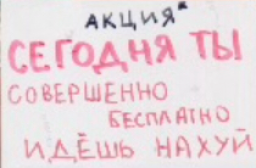 АКЦИЯ*
СЕГОДНЯ ТЫ
СОВЕРШЕННО
БЕСПЛАТНО
ИДЁШЬ НАХУЙ